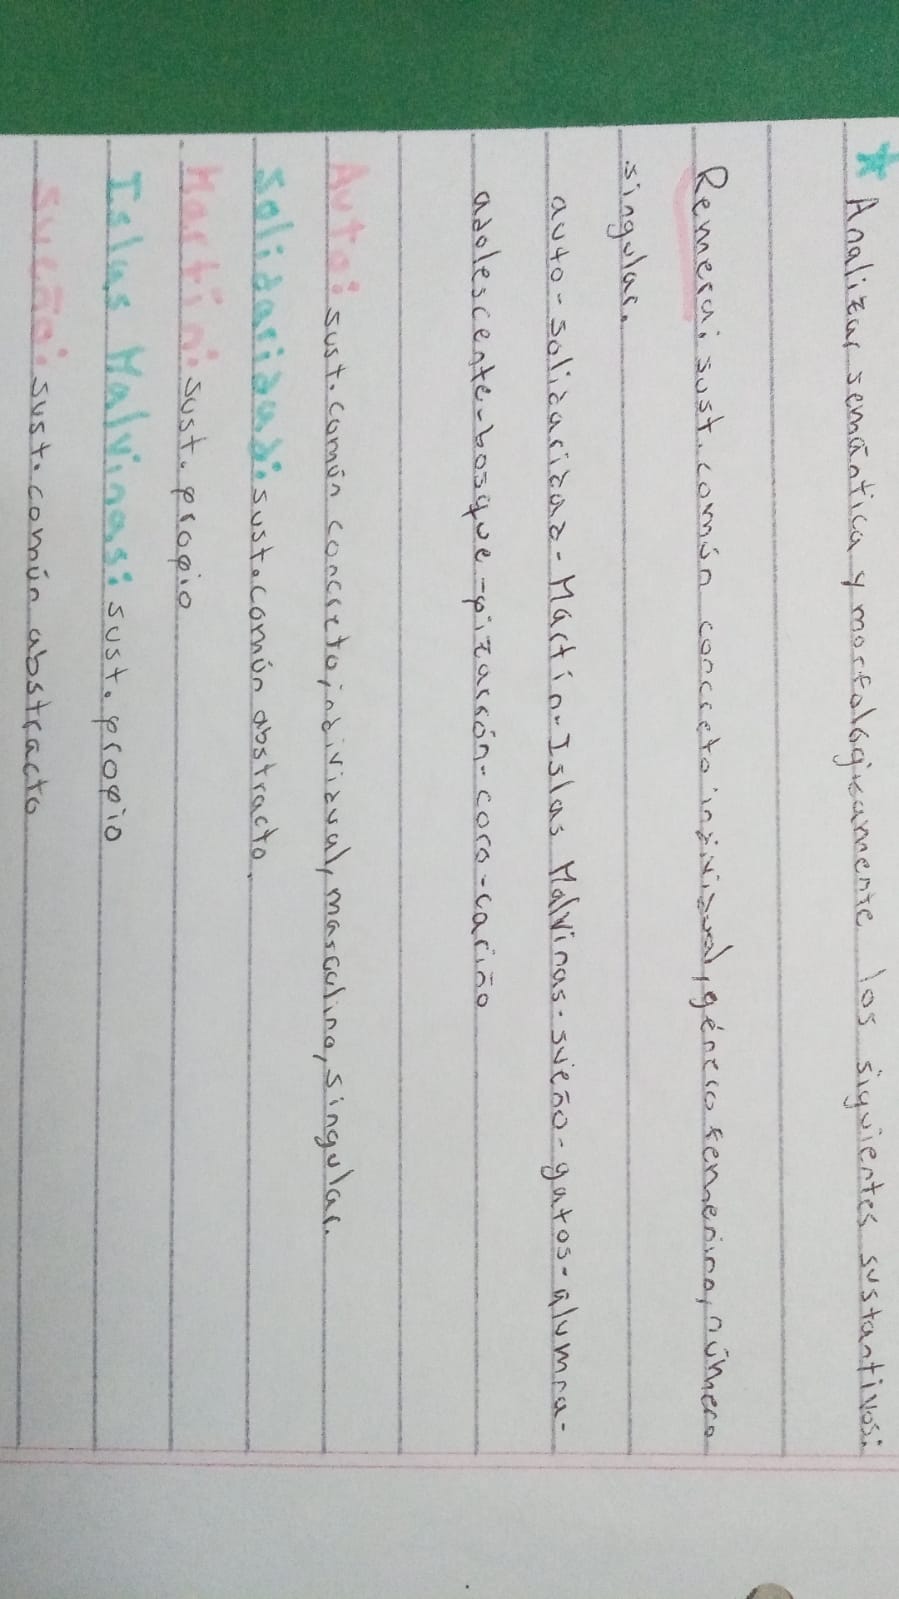 Analizar semántica y morfológicamente los siguientes sustantivos:
Remera: sust. común concreto individual, género femenino, número
singular.
auto-solidaridad-Martín-Islas Malvinas-sueño-gatos-alumna-
adolescente-bosque-pizarrón-coro-cariño
Auto: sust. común concreto, individual, masculino, singular.
Solidaridad: sust. común abstracto.
Martín: sust. propio
Islas Malvinas: sust. propio
Sueño: sust. común abstracto